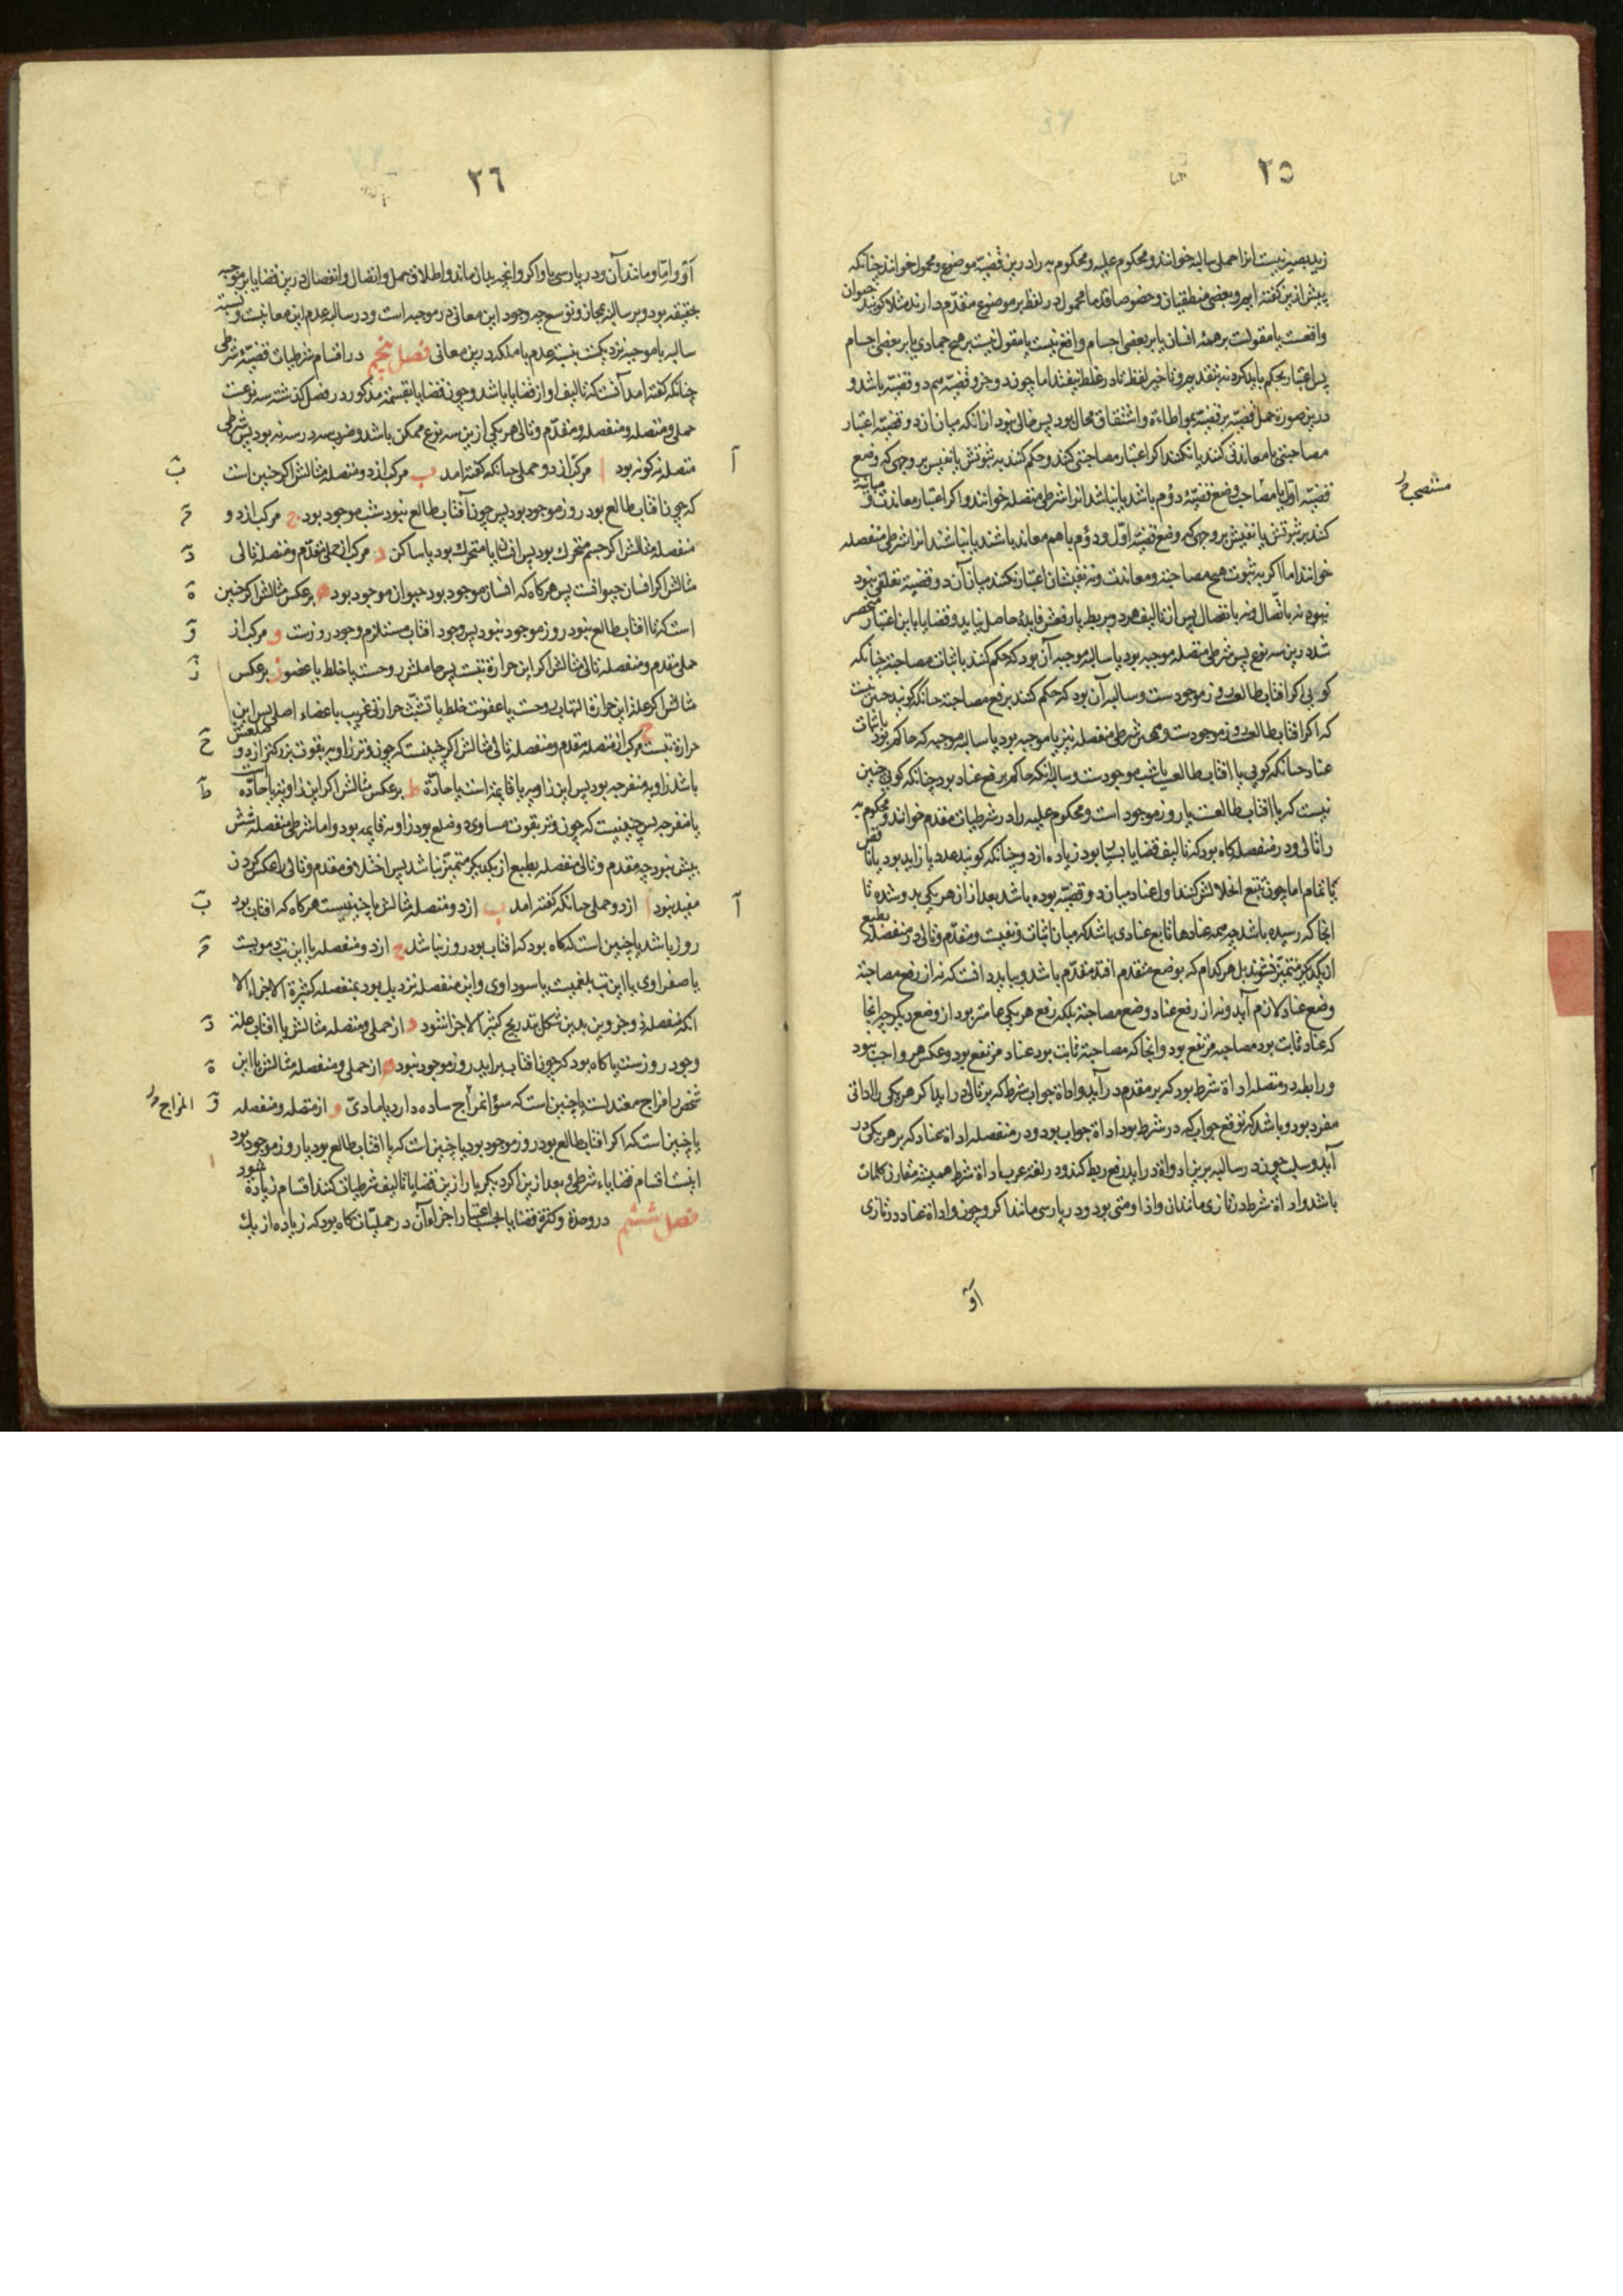 ٢٥
زید بصیر نیست انرا حملی سالبه خوانند و محکوم علیه و محکوم به را درین قضیه موضوع و محمول خوانند چنانکه
پیش ازین گفته ایم و بعضی منطقیان و خصوصا قدما محمول در لفظ بر موضوع مقدم دارند مثلا کویند حیوان
واقعست یا مقولست بر همهٔ انسان یا بر بعضی اجسام و واقع نیست یا مقول نیست بر هیچ جمادی یا بر بعضی اجسام
پس اعتبار بحکم باید کرد نه بتقدیم و تاخیر لفظ تا در غلط نیفتند اما چون دو جزو قضیه هم دو قضیه باشد و
درین صورت حمل قضیه بر قضیه بمواطاءة و اشتقاق محال بود پس خالی نبود ازانکه میان ان دو قضیه اعتبار
مصاحبتی یا معاندتی کنند یا نکنند اگر اعتبار مصاحبتی کنند و حکم کنند به ثبوتش یا نفیش بر وجهی که وضع
قضیه اول یا مصاحب وضع قضیهٔ دوم باشد یا نباشد انرا شرطی متصله خوانند و اکر اعتبار معاندت و مباینة
کنند بثبوتش یا نفیش بر وجهی که وضع قضیه اول و دوم با هم معاند باشند یا نباشند انرا شرطی منفصله
خوانند اما اکر به ثبوت هیچ مصاحبة و معاندت و نه نفیشان اعتبار نکنند میان آن دو قضیه تعلقی نبود
نبود نه باتصال و نه بانفصال پس از تالیف هر دو بربط یا رفعش فایدهٔ حاصل نیاید و قضایا باین اعتبار منحصر
شد درین سه نوع پس شرطی متصله موجبه بود یا سالبه موجبه آن بود که حکم کنند باثبات مصاحبة چنانکه
کویی اکر افتاب طالعست روز موجودست و سالبه آن بود که حکم کنند برفع مصاحبة چنانکه کویند چنین نیست
که اکر افتاب طالعست روز موجودست و همچنین شرطی منفصله نیز یا موجبه بود یا سالبه موجبه که حاکم بود باثبات
عناد چنانکه کویی یا افتاب طالعست یا شب موجودست و سالبه انکه حاکم برفع عناد بود چنانکه کویی چنین
نیست که یا افتاب طالعست یا روز موجود است و محکوم علیه را در شرطیات مقدم خوانند و محکوم به
را تالی و در منفصله کاه بود که تالیف قضایا بسیار بود زیاده از دو چنانکه کویند عدد یا زاید بود یا ناقص
یا تمام اما چون تتبع انحلالش کنند اول عناد میان دو قضیه بوده باشد بعد ازان هر یکی بدو شده تا
انجا که رسیده باشد چه همه عنادها تابع عنادی باشد که میان اثبات و نفیست و مقدم و تالی در منفصله بطبع
از یکدیکر متمیز نشوند بل هر کدام که بوضع متقدم افتد مقدم باشد و بباید دانست که نه از رفع مصاحبة
وضع عناد لازم آید و نه از رفع عناد وضع مصاحبة بلکه رفع هر یکی عامتر بود از وضع دیکر چه انجا
که عناد ثابت بود مصاحبه مرتفع بود و انجا که مصاحبة ثابت بود عناد مرتفع بود و عکس هر دو واجب نبود
و رابطه در متصله اداة شرط بود که بر مقدم در آید و اداة جواب شرط که بر تالی در اید اکر هر یکی را اداتی
مفرد بود و باشد که توقع جواب که در شرط بود اداة جواب بود و در منفصله اداة عناد که بر هر یکی در
آید و سلب چون در سالبه برین ادوات در اید رفع ربط کند و در لغة عرب اداة شرط همیشه مقارن کلمات
باشد و اداة شرط در تازی مانند ان و اذا و متی بود و در پارسی مانند اکر و چون و اداة عناد در تازی
او
مستصحب
٢٦
او و اما و مانند آن و در پارسی یا و اکر و انچه بدان ماند و اطلاق حمل و اتصال و انفصال درین قضایا بر موجبه
بحقیقه بود و بر سالبه بمجاز و توسع چه وجود این معانی در موجبه است و در سالبه عدم این معانیست و نسبت
سالبه با موجبه نزدیکست بنسبت عدم با ملکه درین معانی فصل پنجم در اقسام شرطیات قضیهٔ شرطی
چنانکه کفته امد آنست که تالیف او از قضایا باشد و چون قضایا بقسمة مذکور در فصل کذشته سه نوعست
حملی و متصله و منفصله و مقدم و تالی هر یکی ازین سه نوع ممکن باشد و ضرب سه در سه نه بود پس شرطی
متصله نه کونه بود ا مرکب از دو حملی چنانکه کفته امد ب مرکب از دو متصله مثالش اکر چنین است
که چون افتاب طالع بود روز موجود بود پس چون آفتاب طالع نبود شب موجود بود ج مرکب از دو
منفصله مثالش اکر جسم متحرک بود پس افتاب یا متحرک بود یا ساکن د مرکب از حملی مقدم و متصله تالی
مثالش اکر انسان حیوانست پس هرکاه که انسان موجود بود حیوان موجود بود ه برعکس مثالش اکر چنین
است که تا افتاب طالع نبود روز موجود نبود پس وجود افتاب مستلزم وجود روزست و مرکب از
حملی مقدم و منفصله تالی مثالش اکر این حرارة تبست پس حاملش روحست یا خلط یا عضو ز برعکس
مثالش اکر علة این حرارة التهاب روحست یا عفونت خلط یا تشبث حرارتی غریب باعضاء اصلی پس این
حرارة تبست ح مرکب از متصله مقدم و منفصله تالی مثالش اکر چنینست که چون وتر زاویه بقوت بزرکتر از دو ضلعش
باشد زاویه منفرجه بود پس این زاویه یا قایمه است یا حادة ط برعکس مثالش اکر این زاویه یا حاده است
یا منفرجه پس چنین نیست که چون وتر بقوت مساوی دو ضلع بود زاویه قایمه بود و اما شرطی منفصله شش
بیش نبود چه مقدم و تالی منفصله بطبع از یکدیکر متمیز نباشد پس اختلاف مقدم و تالی را عکس کردن
مفید نبود ا از دو حملی چنانکه کفته امد ب از دو متصله مثالش یا چنینست هرکاه که افتاب بود
روز باشد یا چنین است که کاه بود که افتاب بود روز نباشد ج از دو منفصله یا این تب دمویست
یا صفراوی یا این تب بلغمیست یا سوداوی و این منفصله نزدیک بود بمنفصله کثیرة الاجزاء الا
انکه منفصله ذو جزوین بدین شکل بتدریج کثیر الاجزا شود د از حملی و متصله مثالش یا افتاب علة
وجود روزست یا کاه بود که چون افتاب براید روز موجود نبود ه از حملی و منفصله مثالش یا این
شخص را مزاج معتدلست یا چنین است که سؤ المزاج ساده دارد یا مادی و از متصله و منفصله
یا چنین است که اکر افتاب طالع بود روز موجود بود یا چنین است که یا افتاب طالع بود یا روز موجود بود
اینست اقسام قضایاء شرطی و بعد ازین اکر دیکر بار ازین قضایا تالیف شرطیات کنند اقسام زیاده شود
فصل ششم در وحدة و کثرة قضایا بحسب اعتبار اجزاء آن در حملیات کاه بود که زیاده از یک
المزاج